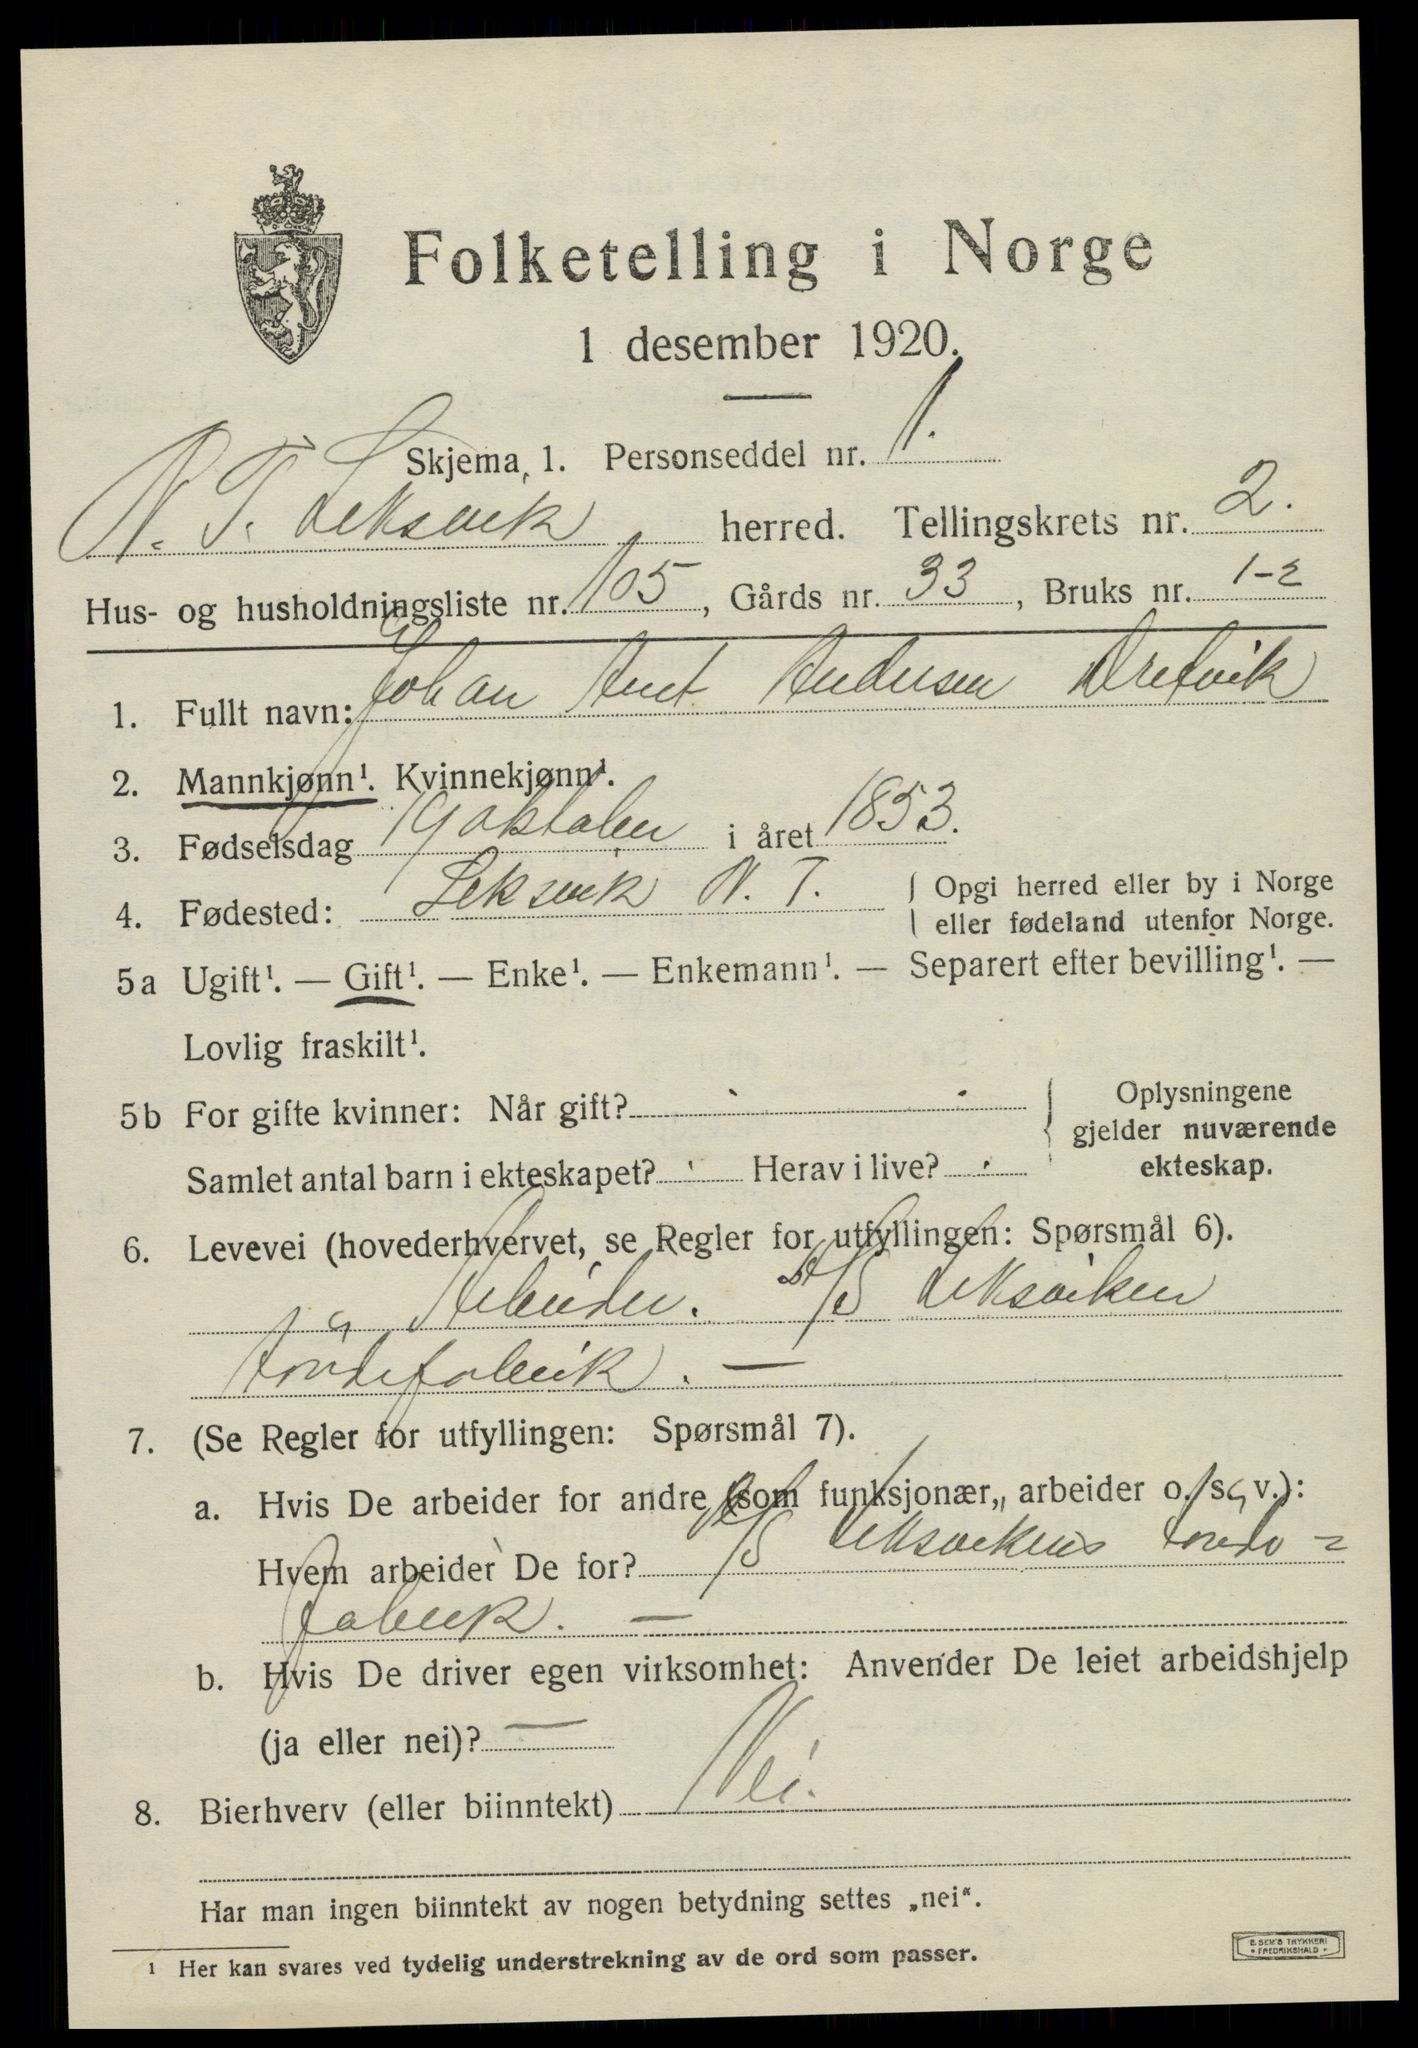 Folketelling i Norge
1 desember 1920.
Skjema 1. Personseddel nr. 1.
N. T. Leksvik herred. Tellingskrets nr. 2.
Hus- og husholdningsliste nr. 105, Gårds nr. 33, Bruks nr. 1-2
1. Fullt navn: Johan Arnt Andersen Dretvik
2. Mannkjønn¹. Kvinnekjønn¹.
3. Fødselsdag 19 oktober i året 1853.
4. Fødested: Leksvik N. T. Opgi herred eller by i Norge
eller fødeland utenfor Norge.
5a Ugift¹. — Gift¹. — Enke¹. — Enkemann¹. — Separert efter bevilling¹. —
Lovlig fraskilt¹.
5b For gifte kvinner: Når gift?
Samlet antal barn i ekteskapet? Herav i live?
Oplysningene
gjelder nuværende
ekteskap.
6. Levevei (hovederhvervet, se Regler for utfyllingen: Spørsmål 6).
Arbeider. A/S Leksviken
töndefabrik. —
7. (Se Regler for utfyllingen: Spørsmål 7).
a. Hvis De arbeider for andre (som funksjonær, arbeider o. s. v.):
Hvem arbeider De for? A/S Leksvikens tönde=
fabrik. —
b. Hvis De driver egen virksomhet: Anvender De leiet arbeidshjelp
(ja eller nei)? —
8. Bierhverv (eller biinntekt) Nei.
Har man ingen biinntekt av nogen betydning settes „nei“.
¹ Her kan svares ved tydelig understrekning av de ord som passer.
E. SEM'S TRYKKERI
• FREDRIKSHALD •